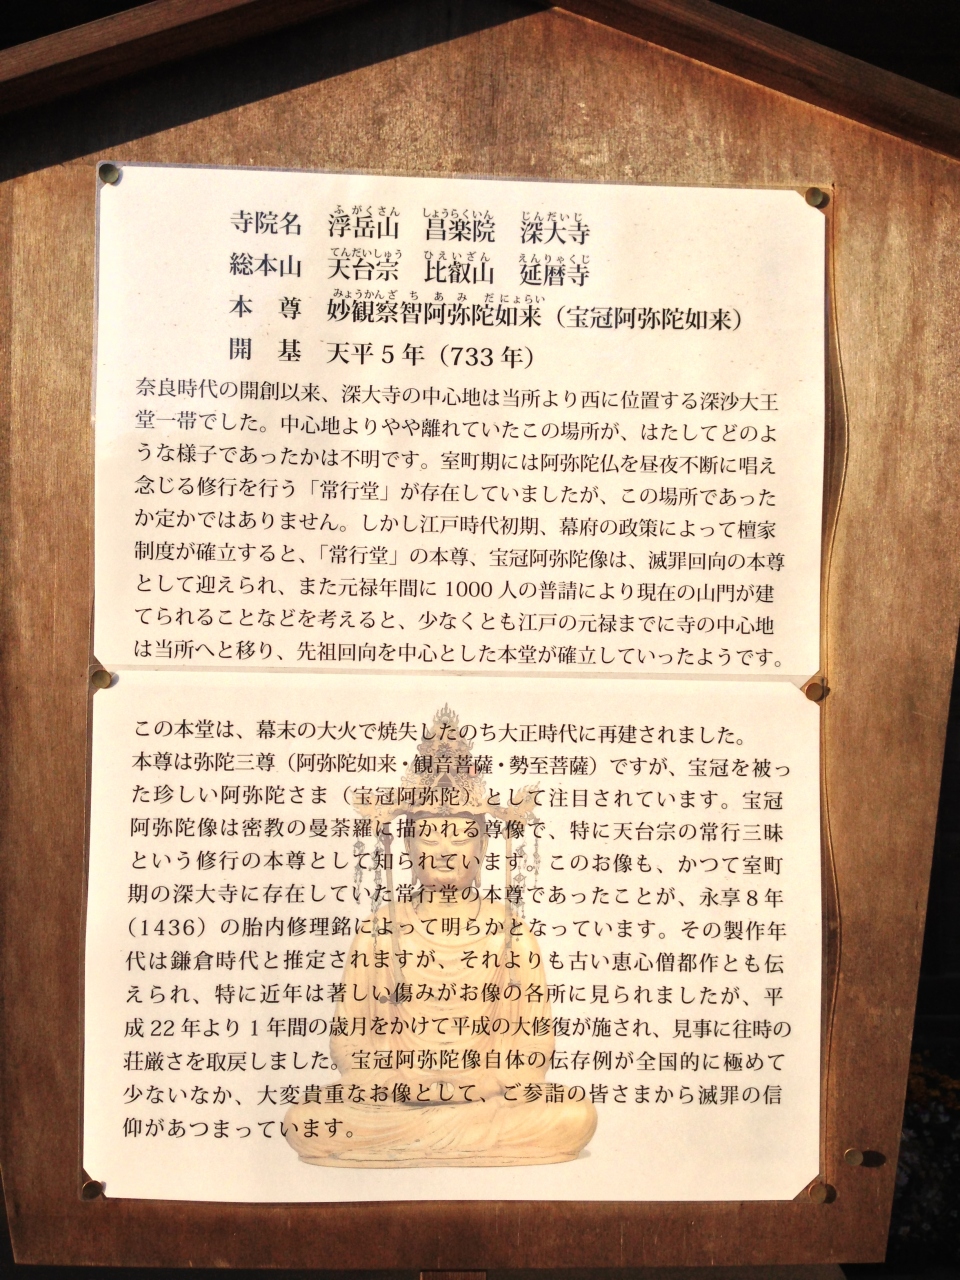 寺院名 浮岳山 昌楽院 深大寺
総本山 天台宗 比叡山 延暦寺
本尊 妙観察智阿弥陀如来（宝冠阿弥陀如来）
開基 天平5年（733年）
奈良時代の開創以来、深大寺の中心地は当所より西に位置する深沙大王
堂一帯でした。中心地よりやや離れていたこの場所が、はたしてどのよ
うな様子であったかは不明です。室町期には阿弥陀仏を昼夜不断に唱え
念じる修行を行う「常行堂」が存在していましたが、この場所であった
か定かではありません。しかし江戸時代初期、幕府の政策によって檀家
制度が確立すると、「常行堂」の本尊、宝冠阿弥陀像は、滅罪回向の本尊
として迎えられ、また元禄年間に1000人の普請により現在の山門が建
てられることなどを考えると、少なくとも江戸の元禄までに寺の中心地
は当所へと移り、先祖回向を中心とした本堂が確立していったようです。
この本堂は、幕末の大火で焼失したのち大正時代に再建されました。
本尊は弥陀三尊（阿弥陀如来・観音菩薩・勢至菩薩）ですが、宝冠を被っ
た珍しい阿弥陀さま（宝冠阿弥陀）として注目されています。宝冠
阿弥陀像は密教の曼荼羅に描かれる尊像で、特に天台宗の常行三昧
という修行の本尊として知られています。このお像も、かつて室町
期の深大寺に存在していた常行堂の本尊であったことが、永享8年
（1436）の胎内修理銘によって明らかとなっています。その製作年
代は鎌倉時代と推定されますが、それよりも古い恵心僧都作とも伝
えられ、特に近年は著しい傷みがお像の各所に見られましたが、平
成22年より1年間の歳月をかけて平成の大修復が施され、見事に往時の
荘厳さを取戻しました。宝冠阿弥陀像自体の伝存例が全国的に極めて
少ないなか、大変貴重なお像として、ご参詣の皆さまから滅罪の信
仰があつまっています。